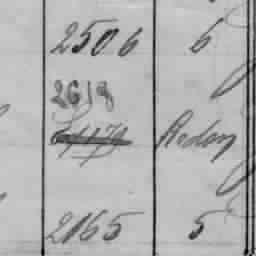 2506 6
2618
Redon
2165 5